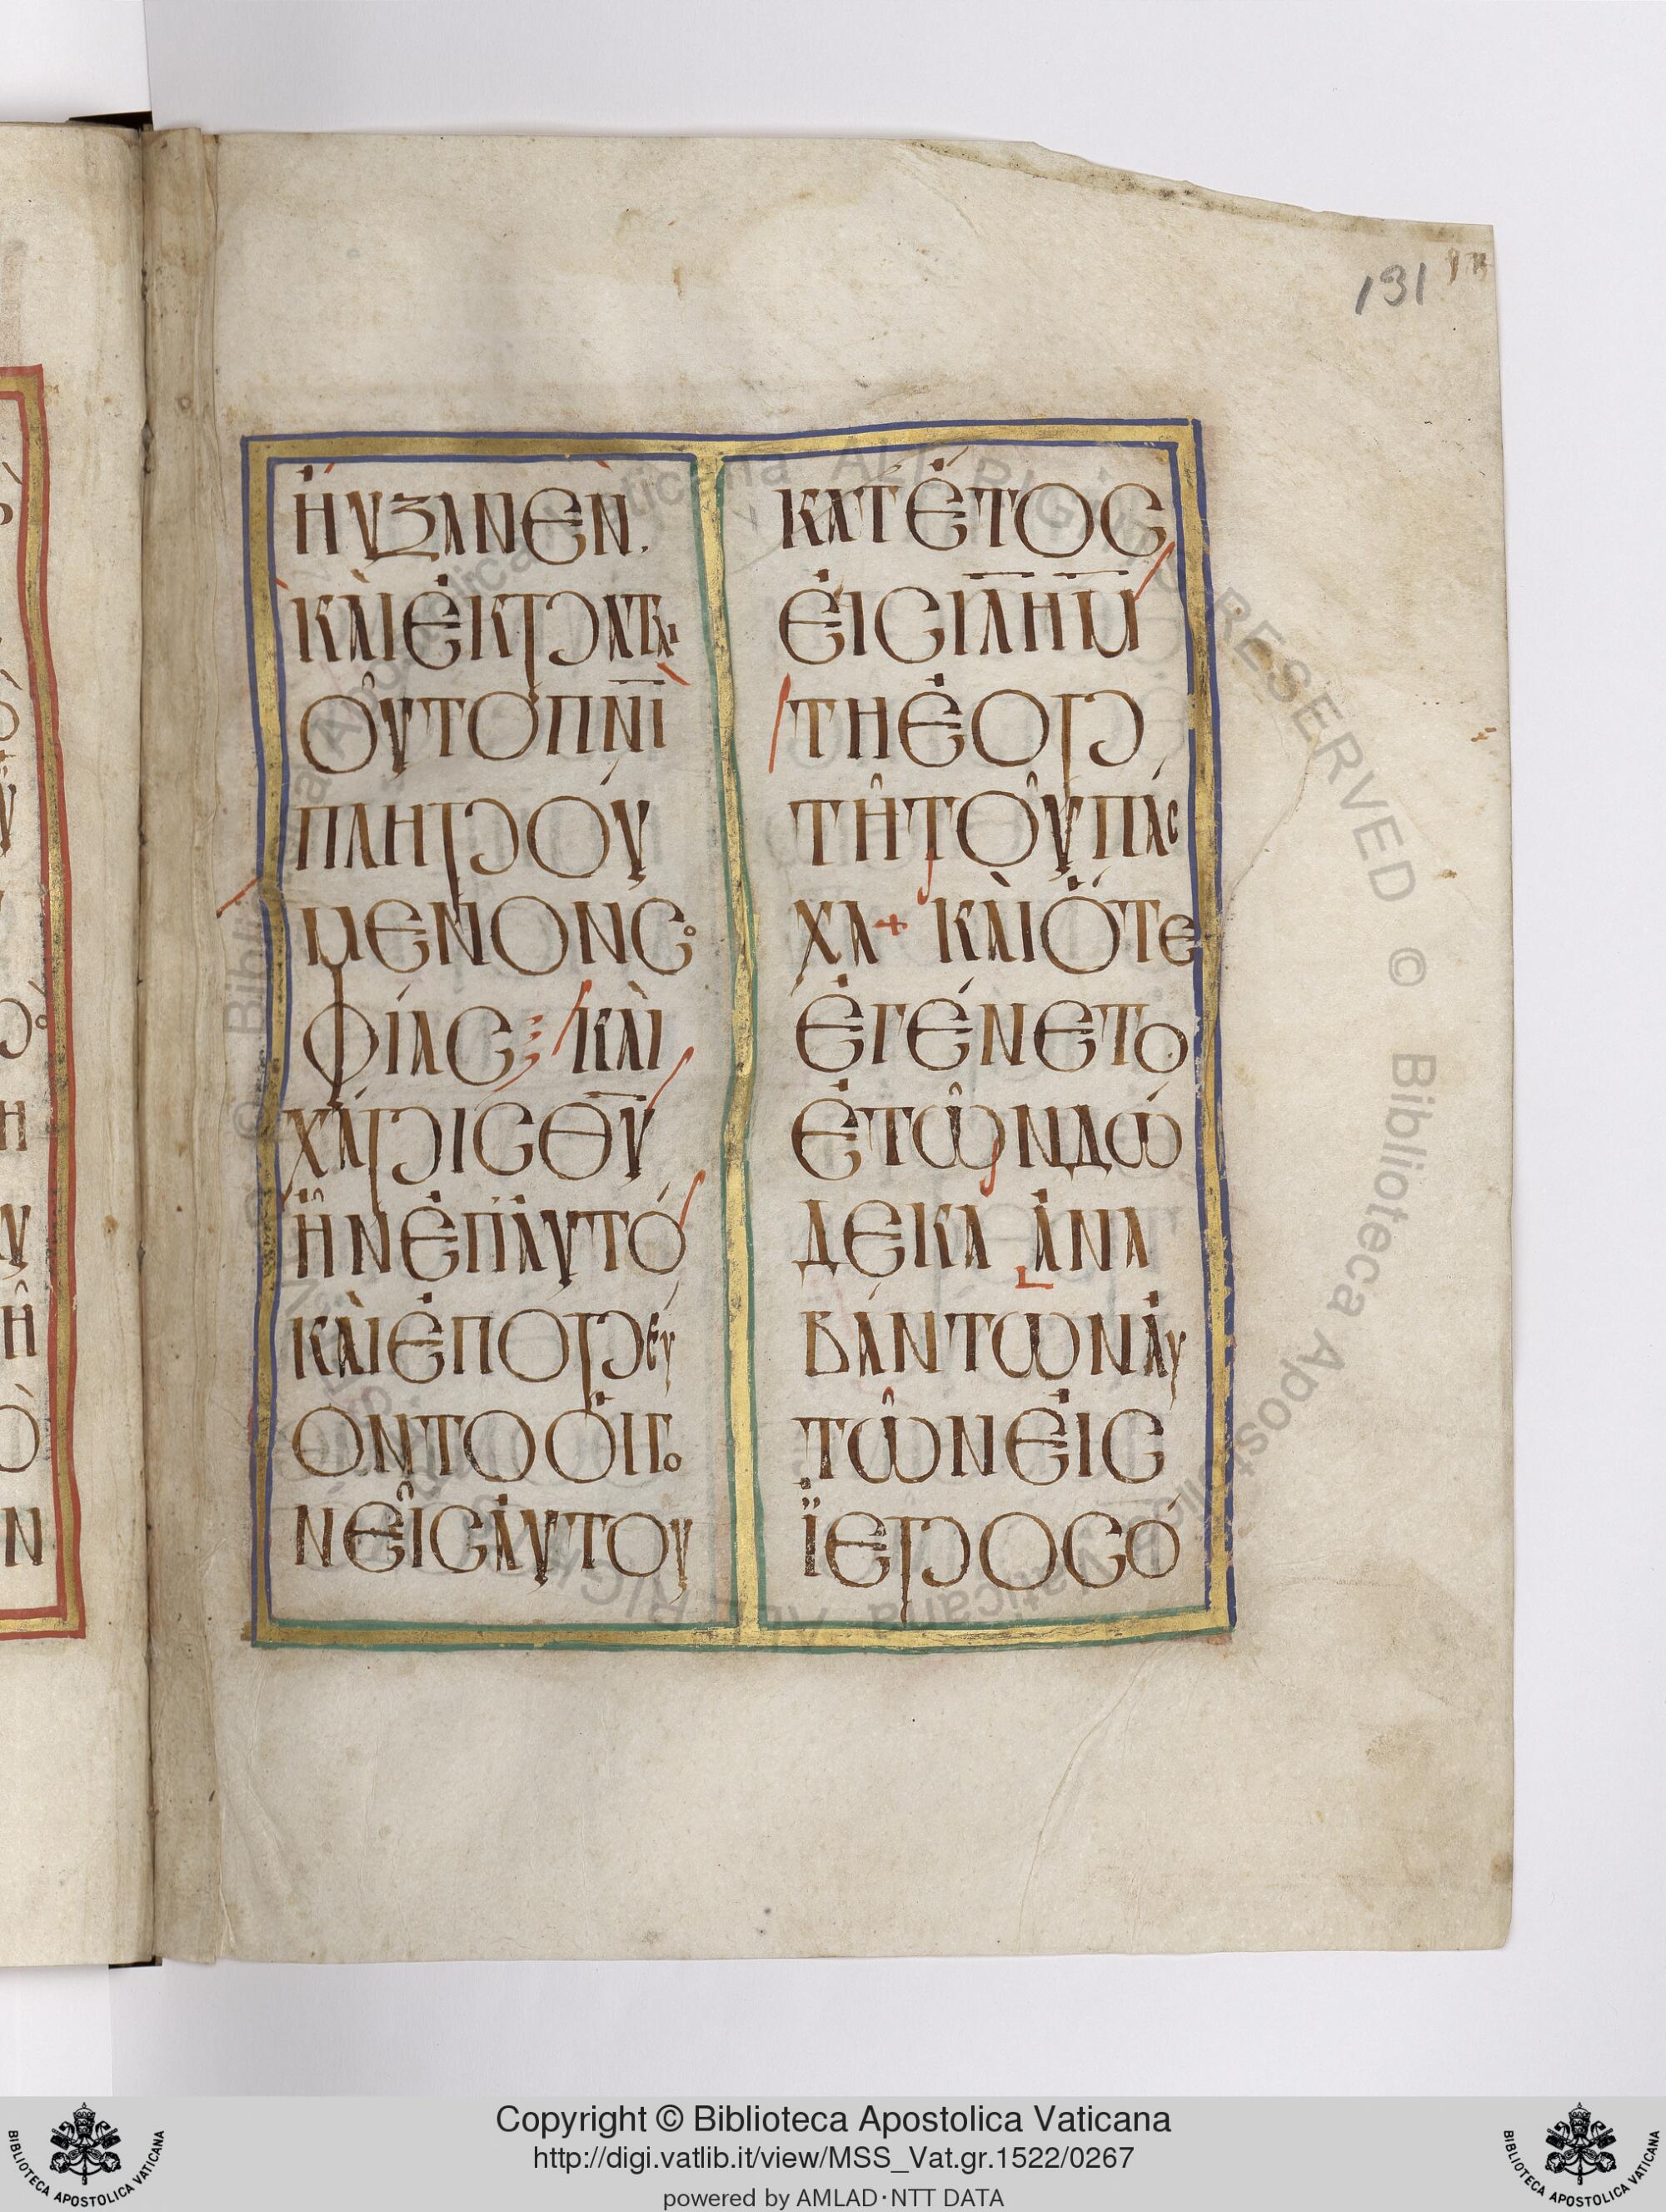 131
ἨΥΞΑΝΕΝ.
ΚΑῚἘΚΡΑΤΑΙ
ΟΥ͂ΤΟΠΝΙ
ΠΛΗΡΟΎ
ΜΕΝΟΝΣΟ
ΦΊΑΣ ΚΑῚ
ΧΆΡΙΣΘΥ
ἮΝἘΠΑΥΤΌ
ΚΑῚἘΠΟΡΕΎ
ΟΝΤΟΟἹΓΟ
ΝΕΙ͂ΣΑΥΤΟΥ
ΚΑΤΈΤΟΣ
ἘΙΣΙΛΗΜ
ΤΗἙΟΡ
ΤΗ͂ΤΟΥ͂ΠΆΣ
ΧΑ+ ΚΑῚὍΤΕ
ἘΓΈΝΕΤΟ
ἘΤΩ͂ΝΔΏ
ΔΕΚΑ ἈΝΑ
ΒΆΝΤΩΝΑΥ
ΤΩ͂ΝΕἸΣ
ἹΕΡΟΣΌ
Copyright © Biblioteca Apostolica Vaticana
http://digi.vatlib.it/view/MSS_Vat.gr.1522/0267
powered by AMLAD·NTT DATA
BIBLIOTECA APOSTOLICA VATICANA
BIBLIOTECA APOSTOLICA VATICANA